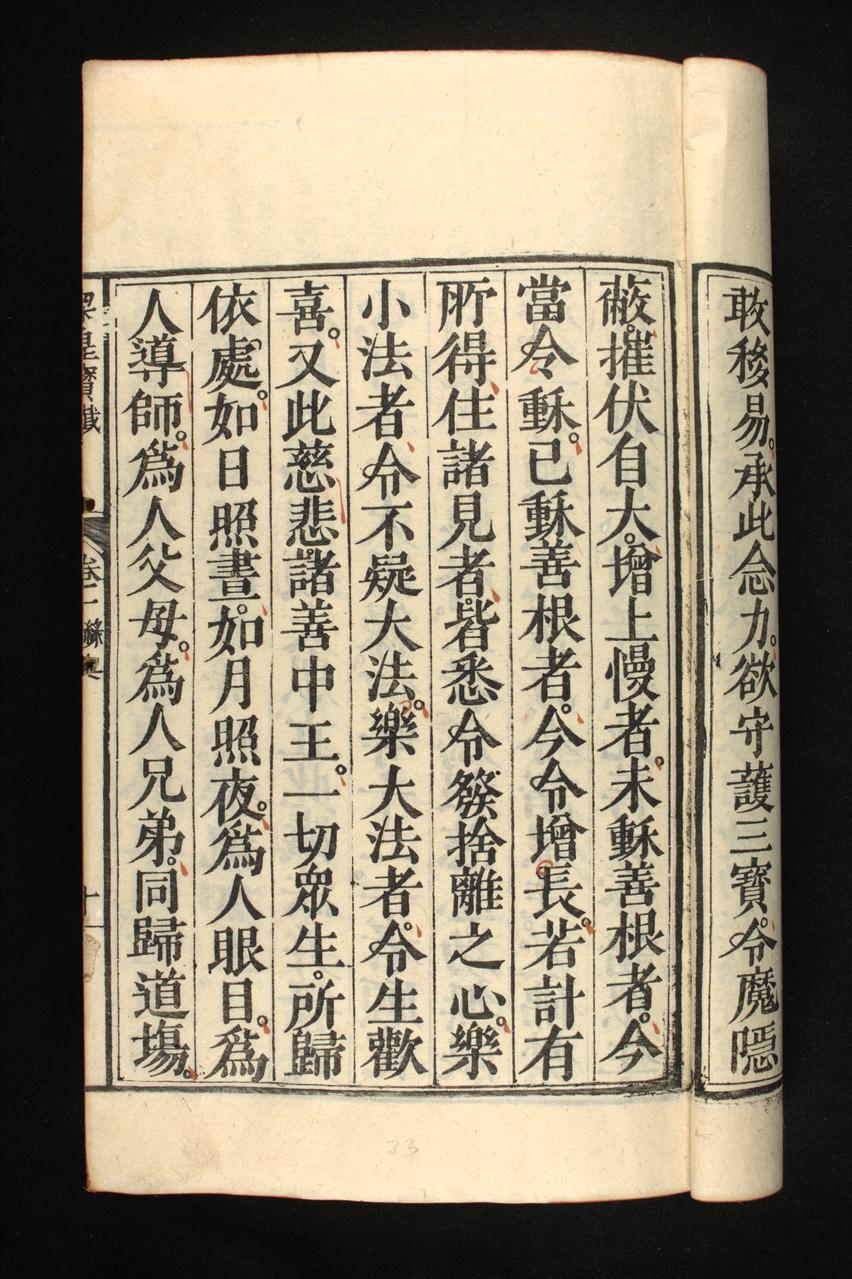 敢移易。承此念力。欲守護三寶。令魔隱
蔽。摧伏自大。增上慢者。未種善根者。今
當令種。已種善根者。今令增長。若計有
所得。住諸見者。皆悉令發捨離之心。樂
小法者。令不疑大法。樂大法者。令生歡
喜。又此慈悲。諸善中王。一切眾生。所歸
依處。如日照晝。如月照夜。為人眼目。為
人導師。為人父母。為人兄弟。同歸道場。
梁皇寶懺 卷二 十一
33